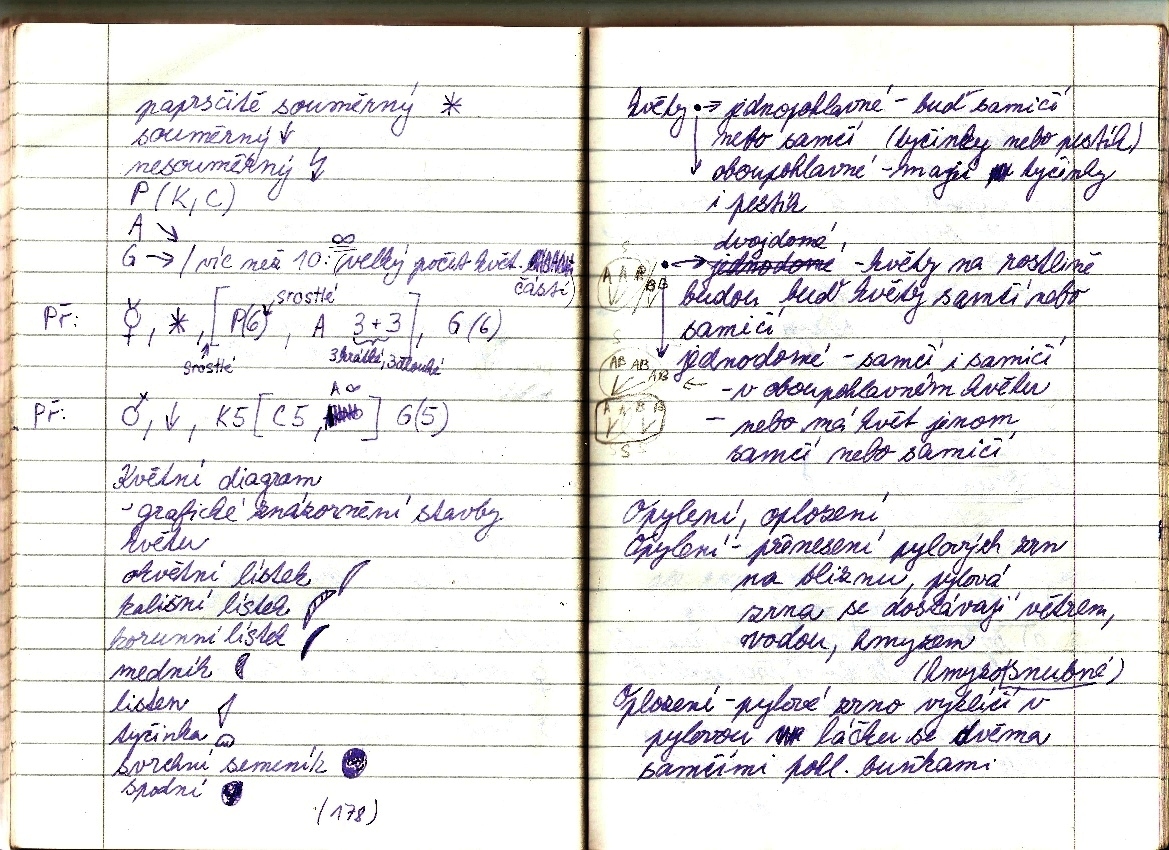 paprsčitě souměrný *
souměrný ↓
nesouměrný
P (K, C)
A ↘
G → / víc než 10: ∞ (velký počet květ. částí)
srostlé
Př: ⚥, *, [P(6), A 3+3], G(6)
srostlé
3 krátké, 3 dlouhé
A ∞
Př: ♂, ↓, K5 [C5, ] G(5)
Květní diagram
- grafické znázornění stavby
květu
okvětní lístek
kališní lístek
korunní lístek
medník
listen
tyčinka
svrchní semeník
spodní
(178)
květy → jednopohlavné - buď samičí
nebo samčí (tyčinky nebo pestík)
oboupohlavné - mají tyčinky
i pestík
dvojdomé,
→ jednodomé - květy na rostlině
budou buď květy samčí nebo
samičí
jednodomé - samčí i samičí
← - v oboupohlavném květu
- nebo má květ jenom
samčí nebo samičí
S
A A A / BB B
S
AB AB AB
A A B B
S S
Opylení, oplození
Opylení - přenesení pylových zrn
na bliznu, pylová
zrna se dostávají větrem,
vodou, hmyzem
(hmyzosnubné)
Oplození - pylové zrno vyklíčí v
pylovou láčku se dvěma
samčími pohl. buňkami